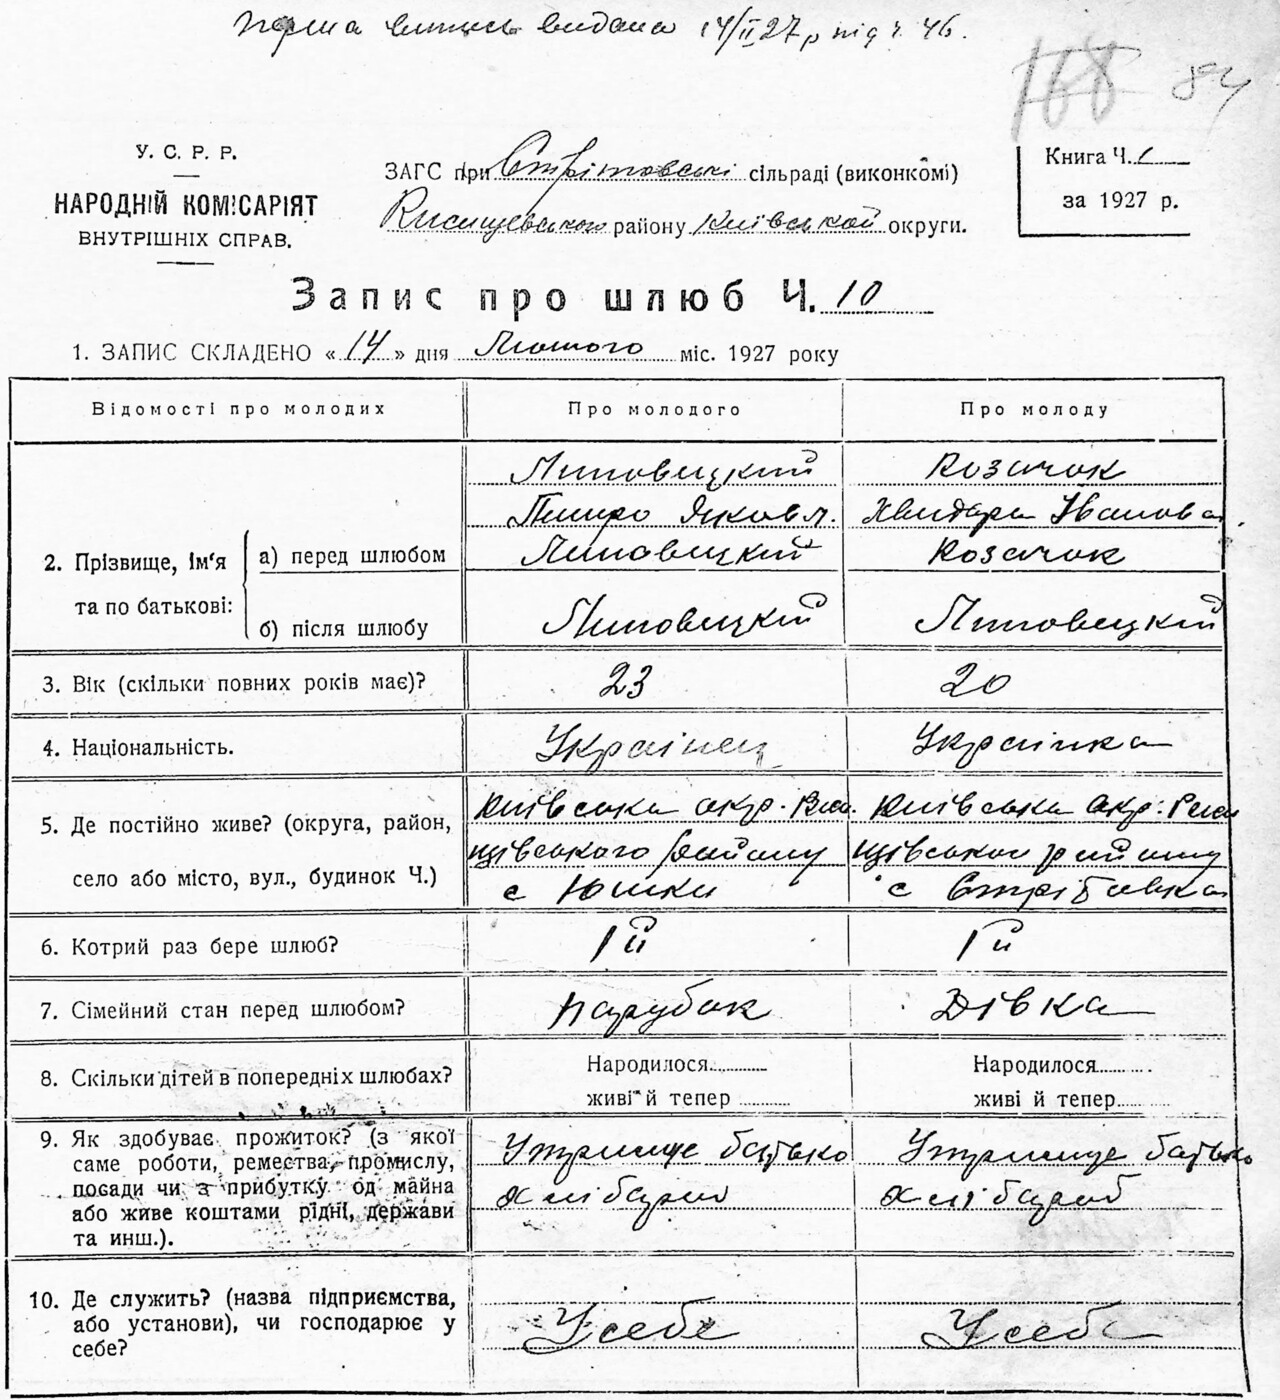 Перша виписъ видана 14/II 27 р під ч. 46.
168 84
У. С. Р. Р.
НАРОДНІЙ КОМІСАРІЯТ
ВНУТРІШНІХ СПРАВ.
ЗАГС при Стрітовські сільраді (виконкомі)
району Київськой округи.
Книга Ч. 1
за 1927 р.
Запис про шлюб Ч. 10
1. ЗАПИС СКЛАДЕНО « 14 » дня Лютого міс. 1927 року
Відомості про молодих Про молодого Про молоду
2. Прізвище, ім'я та по батькові:
а) перед шлюбом
Липовецкий Козачок
Пилипо Яковл. Хвидора Іванова
Липовецкій Козачок
б) після шлюбу Липовецкій Липовецкій
3. Вік (скільки повних років має)? 23 20
4. Національність. Українец Українка
5. Де постійно живе? (округа, район, Київська окр. Ржи Київська окр: Ржи
щівського району щівськой району
село або місто, вул., будинок Ч.) с Юшки с Стрітовка
6. Котрий раз бере шлюб? 1й 1й
7. Сімейний стан перед шлюбом? Парубок Дівка
8. Скільки дітей в попередніх шлюбах? Народилося Народилося
живі й тепер живі й тепер
9. Як здобуває прожиток? (з якої
саме роботи, ремества, промислу,
посади чи з прибутку од майна
або живе коштами рідні, держави
та инш.).
Утримує батько Утримує батько
хлібороб хлібороб
10. Де служить? (назва підприємства,
або установи), чи господарює у
себе?
У себе У себе